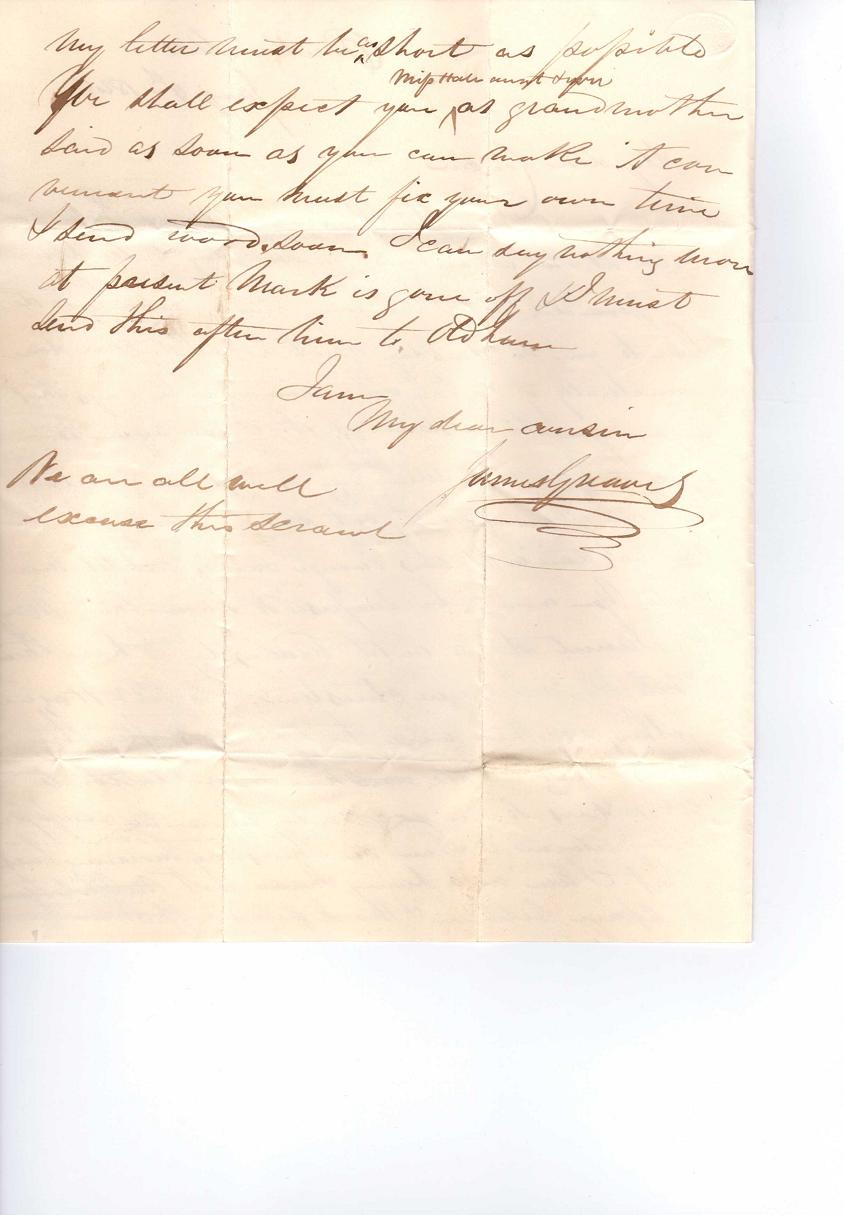 My letter must be as short as possible
Miss Hall aunt & you
We shall expect you ^ as grandmother
said as soon as you can make it con
venient you must fix your own time
& send word soon. I can say nothing more
at present Mark is gone off & I must
send this after him to Oldham
I am
My dear cousin
James Greaves
We are all well
excuse this scrawl